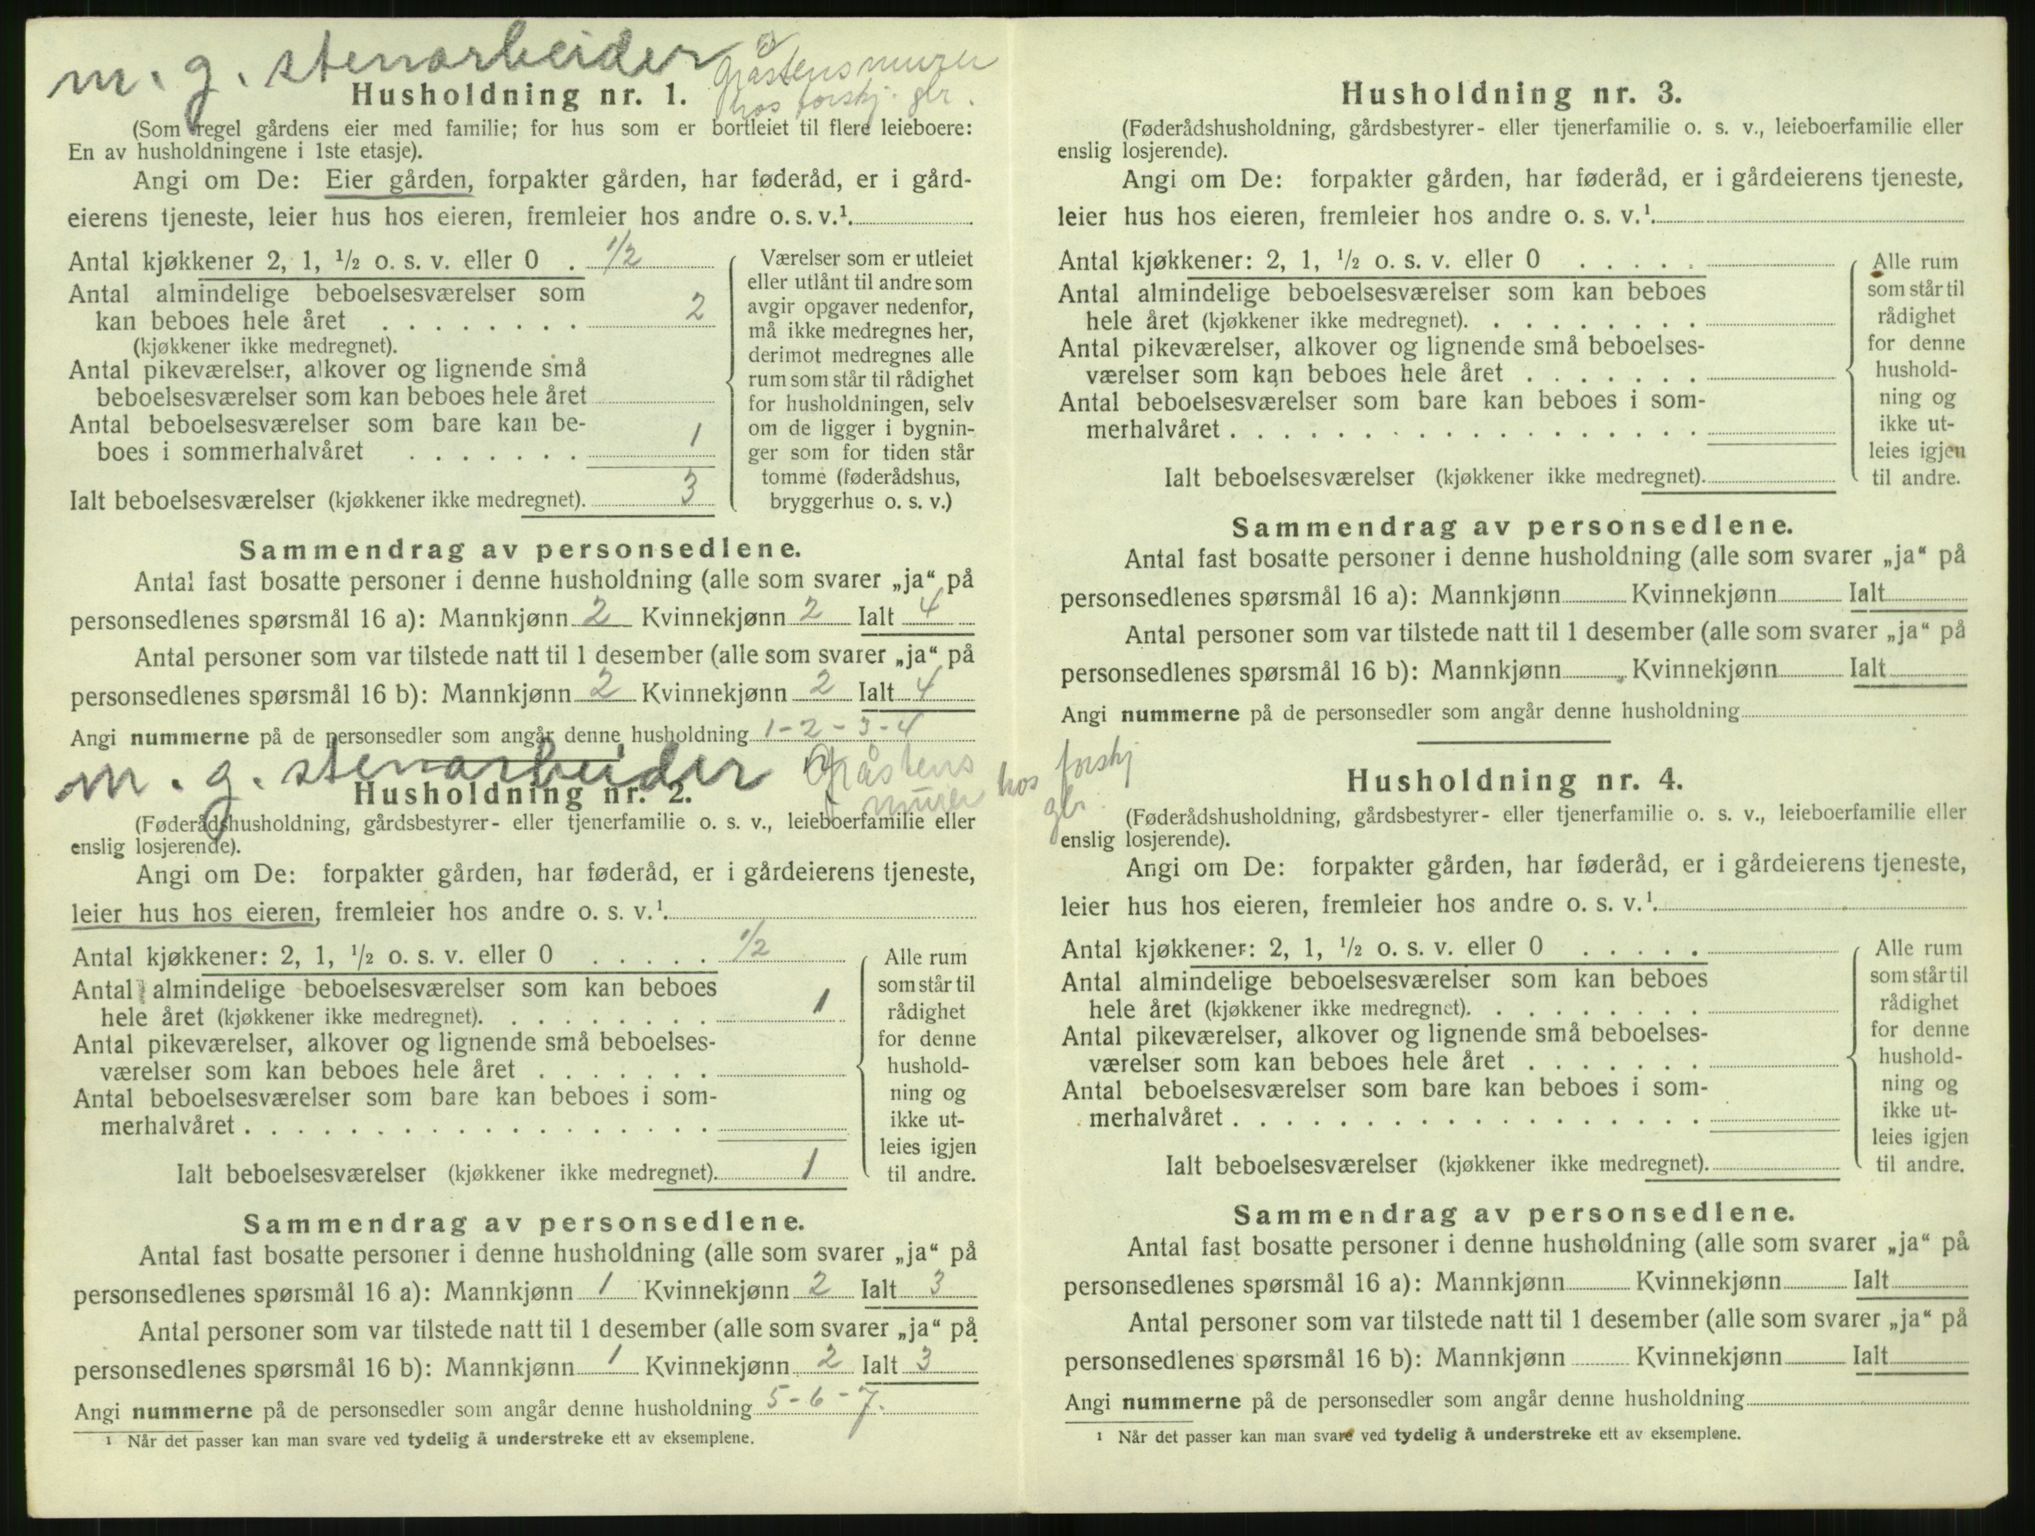 m. g. stenarbeider
Gråstensmurer
hos forskj. gbr.
Husholdning nr. 1.
(Som regel gårdens eier med familie; for hus som er bortleiet til flere leieboere:
En av husholdningene i 1ste etasje).
Angi om De: Eier gården, forpakter gården, har føderåd, er i gård-
eierens tjeneste, leier hus hos eieren, fremleier hos andre o. s. v.¹
Antal kjøkkener 2, 1, ½ o. s. v. eller 0 . 1/2
Antal almindelige beboelsesværelser som
kan beboes hele året . . . . . . . . 2
(kjøkkener ikke medregnet).
Antal pikeværelser, alkover og lignende små
beboelsesværelser som kan beboes hele året
Antal beboelsesværelser som bare kan be-
boes i sommerhalvåret . . . . . . . 1
Ialt beboelsesværelser (kjøkkener ikke medregnet). 3
Værelser som er utleiet
eller utlånt til andre som
avgir opgaver nedenfor,
må ikke medregnes her,
derimot medregnes alle
rum som står til rådighet
for husholdningen, selv
om de ligger i bygnin-
ger som for tiden står
tomme (føderådshus,
bryggerhus o. s. v.)
Sammendrag av personsedlene.
Antal fast bosatte personer i denne husholdning (alle som svarer „ja“ på
personsedlenes spørsmål 16 a): Mannkjønn 2 Kvinnekjønn 2 Ialt 4
Antal personer som var tilstede natt til 1 desember (alle som svarer „ja“ på
personsedlenes spørsmål 16 b): Mannkjønn 2 Kvinnekjønn 2 Ialt 4
Angi nummerne på de personsedler som angår denne husholdning 1-2-3-4
m. g. stenarbeider
Gråstens
murer hos forskj
gbr.
Husholdning nr. 2.
(Føderådshusholdning, gårdsbestyrer- eller tjenerfamilie o. s. v., leieboerfamilie eller
enslig losjerende).
Angi om De: forpakter gården, har føderåd, er i gårdeierens tjeneste,
leier hus hos eieren, fremleier hos andre o. s. v.¹
Antal kjøkkener: 2, 1, ½ o. s. v. eller 0 . . . . . 1/2
Antal almindelige beboelsesværelser som kan beboes
hele året (kjøkkener ikke medregnet). . . . . . . . . 1
Antal pikeværelser, alkover og lignende små beboelses-
værelser som kan beboes hele året . . . . . . .
Antal beboelsesværelser som bare kan beboes i som-
merhalvåret . . . . . . . . . . . . . . . . . .
Ialt beboelsesværelser (kjøkkener ikke medregnet). 1
Alle rum
som står til
rådighet
for denne
hushold-
ning og
ikke ut-
leies igjen
til andre.
Sammendrag av personsedlene.
Antal fast bosatte personer i denne husholdning (alle som svarer „ja“ på
personsedlenes spørsmål 16 a): Mannkjønn 1 Kvinnekjønn 2 Ialt 3
Antal personer som var tilstede natt til 1 desember (alle som svarer „ja“ på
personsedlenes spørsmål 16 b): Mannkjønn 1 Kvinnekjønn 2 Ialt 3
Angi nummerne på de personsedler som angår denne husholdning 5-6-7.
¹ Når det passer kan man svare ved tydelig å understreke ett av eksemplene.
Husholdning nr. 3.
(Føderådshusholdning, gårdsbestyrer- eller tjenerfamilie o. s. v., leieboerfamilie eller
enslig losjerende).
Angi om De: forpakter gården, har føderåd, er i gårdeierens tjeneste,
leier hus hos eieren, fremleier hos andre o. s. v.¹
Antal kjøkkener: 2, 1, ½ o. s. v. eller 0 . . . . .
Antal almindelige beboelsesværelser som kan beboes
hele året (kjøkkener ikke medregnet). . . . . . . . .
Antal pikeværelser, alkover og lignende små beboelses-
værelser som kan beboes hele året . . . . . . .
Antal beboelsesværelser som bare kan beboes i som-
merhalvåret . . . . . . . . . . . . . . . . . .
Ialt beboelsesværelser (kjøkkener ikke medregnet).
Alle rum
som står til
rådighet
for denne
hushold-
ning og
ikke ut-
leies igjen
til andre.
Sammendrag av personsedlene.
Antal fast bosatte personer i denne husholdning (alle som svarer „ja“ på
personsedlenes spørsmål 16 a): Mannkjønn Kvinnekjønn Ialt
Antal personer som var tilstede natt til 1 desember (alle som svarer „ja“ på
personsedlenes spørsmål 16 b): Mannkjønn Kvinnekjønn Ialt
Angi nummerne på de personsedler som angår denne husholdning
Husholdning nr. 4.
(Føderådshusholdning, gårdsbestyrer- eller tjenerfamilie o. s. v., leieboerfamilie eller
enslig losjerende).
Angi om De: forpakter gården, har føderåd, er i gårdeierens tjeneste,
leier hus hos eieren, fremleier hos andre o. s. v.¹
Antal kjøkkener: 2, 1, ½ o. s. v. eller 0 . . . . .
Antal almindelige beboelsesværelser som kan beboes
hele året (kjøkkener ikke medregnet). . . . . . . . .
Antal pikeværelser, alkover og lignende små beboelses-
værelser som kan beboes hele året . . . . . . .
Antal beboelsesværelser som bare kan beboes i som-
merhalvåret . . . . . . . . . . . . . . . . . .
Ialt beboelsesværelser (kjøkkener ikke medregnet).
Alle rum
som står til
rådighet
for denne
hushold-
ning og
ikke ut-
leies igjen
til andre.
Sammendrag av personsedlene.
Antal fast bosatte personer i denne husholdning (alle som svarer „ja“ på
personsedlenes spørsmål 16 a): Mannkjønn Kvinnekjønn Ialt
Antal personer som var tilstede natt til 1 desember (alle som svarer „ja“ på
personsedlenes spørsmål 16 b): Mannkjønn Kvinnekjønn Ialt
Angi nummerne på de personsedler som angår denne husholdning
¹ Når det passer kan man svare ved tydelig å understreke ett av eksemplene.